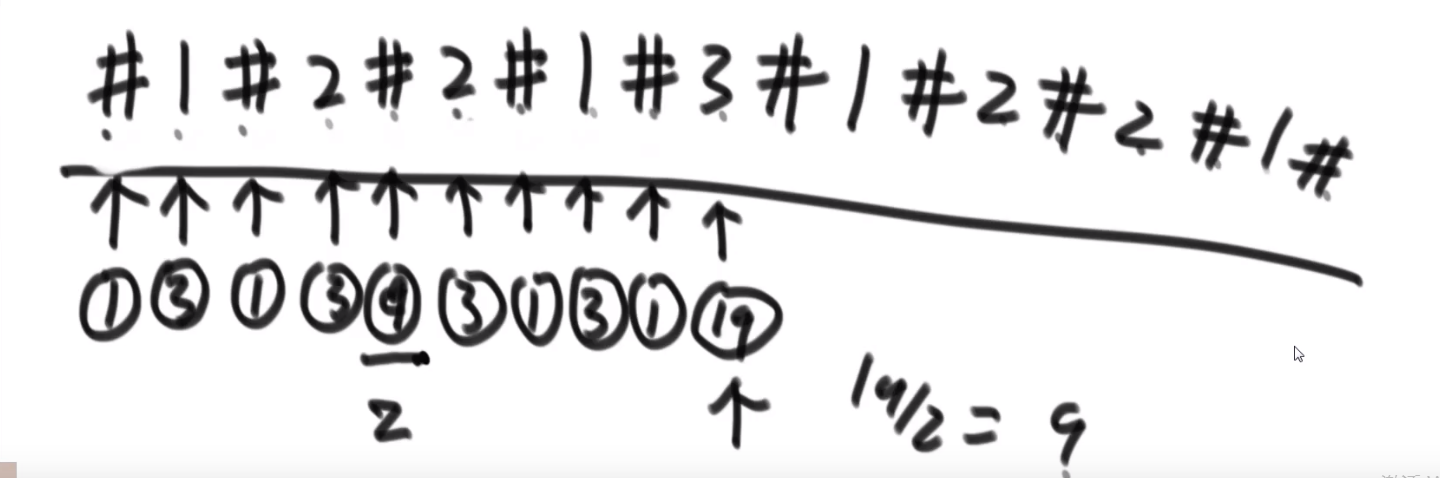 # 1 # 2 # 2 # 1 # 3 # 1 # 2 # 2 # 1 #
① ③ ① ③ ⑨ ③ ① ③ ① ⑲
2
19/2 = 9